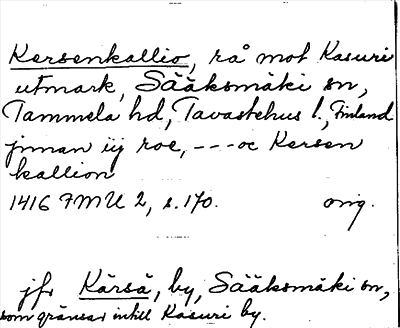 Kersenkallio, rå mot Kasuri
utmark, Sääksmäki sn,
Tammela hd, Tavastehus l., Finland
jnnan iij roe, ---oc Kersen
kallion
1416 FMU 2, s. 170. orig.
jfr Kärsä, by, Sääksmäki sn,
som gränsar intill Kasuri by.